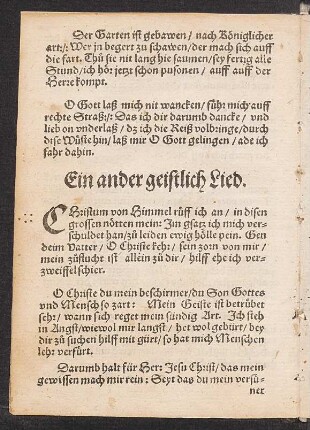 Der Garten ist gebawen / nach Königlicher
art:/: Wer jn begert zu schawen / der mach sich auff
die fart. Thů sie nit lang hie saumen / sey fertig alle
Stund / ich hör jetzt schon pusonen / auff auff der
Herre kompt.
O Gott laß mich nit wancken / führ mich auff
rechte Straß:/: Das ich dir darumb dancke / vnd
lieb on vnderlaß / dz ich die Reiß volbringe / durch
dise Wüste hin / laß mir O Gott gelingen / ade ich
fahr dahin.
Ein ander geistlich Lied.
Christum von Himmel rüff ich an / in disen
grossen nötten mein: Im gsatz ich mich ver-
schuldet han / zů leiden ewig hölle pein. Gen
deim Vatter / O Christe kehr / sein zorn von mir /
mein zůflucht ist allein zů dir / hilff ehe ich ver-
zweiffel schier.
O Christe du mein beschirmer / du Son Gottes
vnd Mensch so zart: Mein Geiste ist betrübet
sehr / wann sich reget mein sündig Art. Ich steh
in Angst / wiewol mir langst / het wol gebürt / bey
dir zů suchen hilff mit gürt / so hat mich Menschen
lehr verfürt.
Darumb halt für Herr Jesu Christ / das mein
gewissen mach mir rein: Seyt das du mein versü-
ner